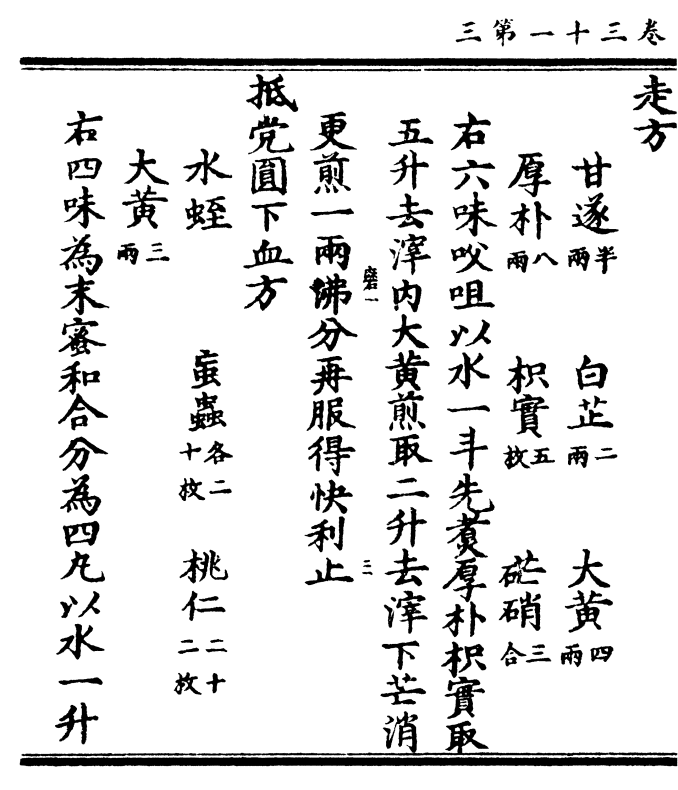 卷三十一第三
走方
甘遂半兩 白芷二兩 大黃四兩
厚朴八兩 枳實五枚 硭硝三合
右六味㕮咀以水一斗先煮厚朴枳實取
五升去滓內大黃煎取二升去滓下芒消
更煎一兩沸分再服得快利止
抵党圓下血方
水蛭 䖟蟲各二十枚 桃仁二十二枚
大黃三兩
右四味為末蜜和合分為四丸以水一升